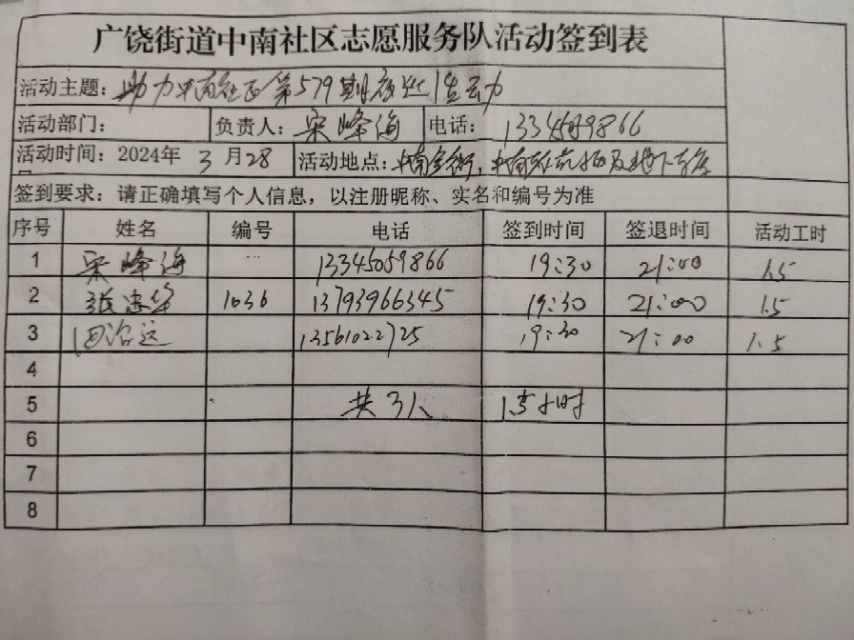 广饶街道中南社区志愿服务队活动签到表
活动主题：助力中南社区第579期夜巡活动
活动部门： 负责人：宋峰海 电话：13345059866
活动时间：2024年3月28 活动地点：中南金街，中南 及地下车库
签到要求：请正确填写个人信息，以注册昵称、实名和编号为准
序号 姓名 编号 电话 签到时间 签退时间 活动工时
1 宋峰海 ... 13345059866 19:30 21:00 1.5
2 张忠华 1036 13793966345 19:30 21:00 1.5
3 田治运 13561022725 19:30 21:00 1.5
4
5 共3人 1.5小时
6
7
8